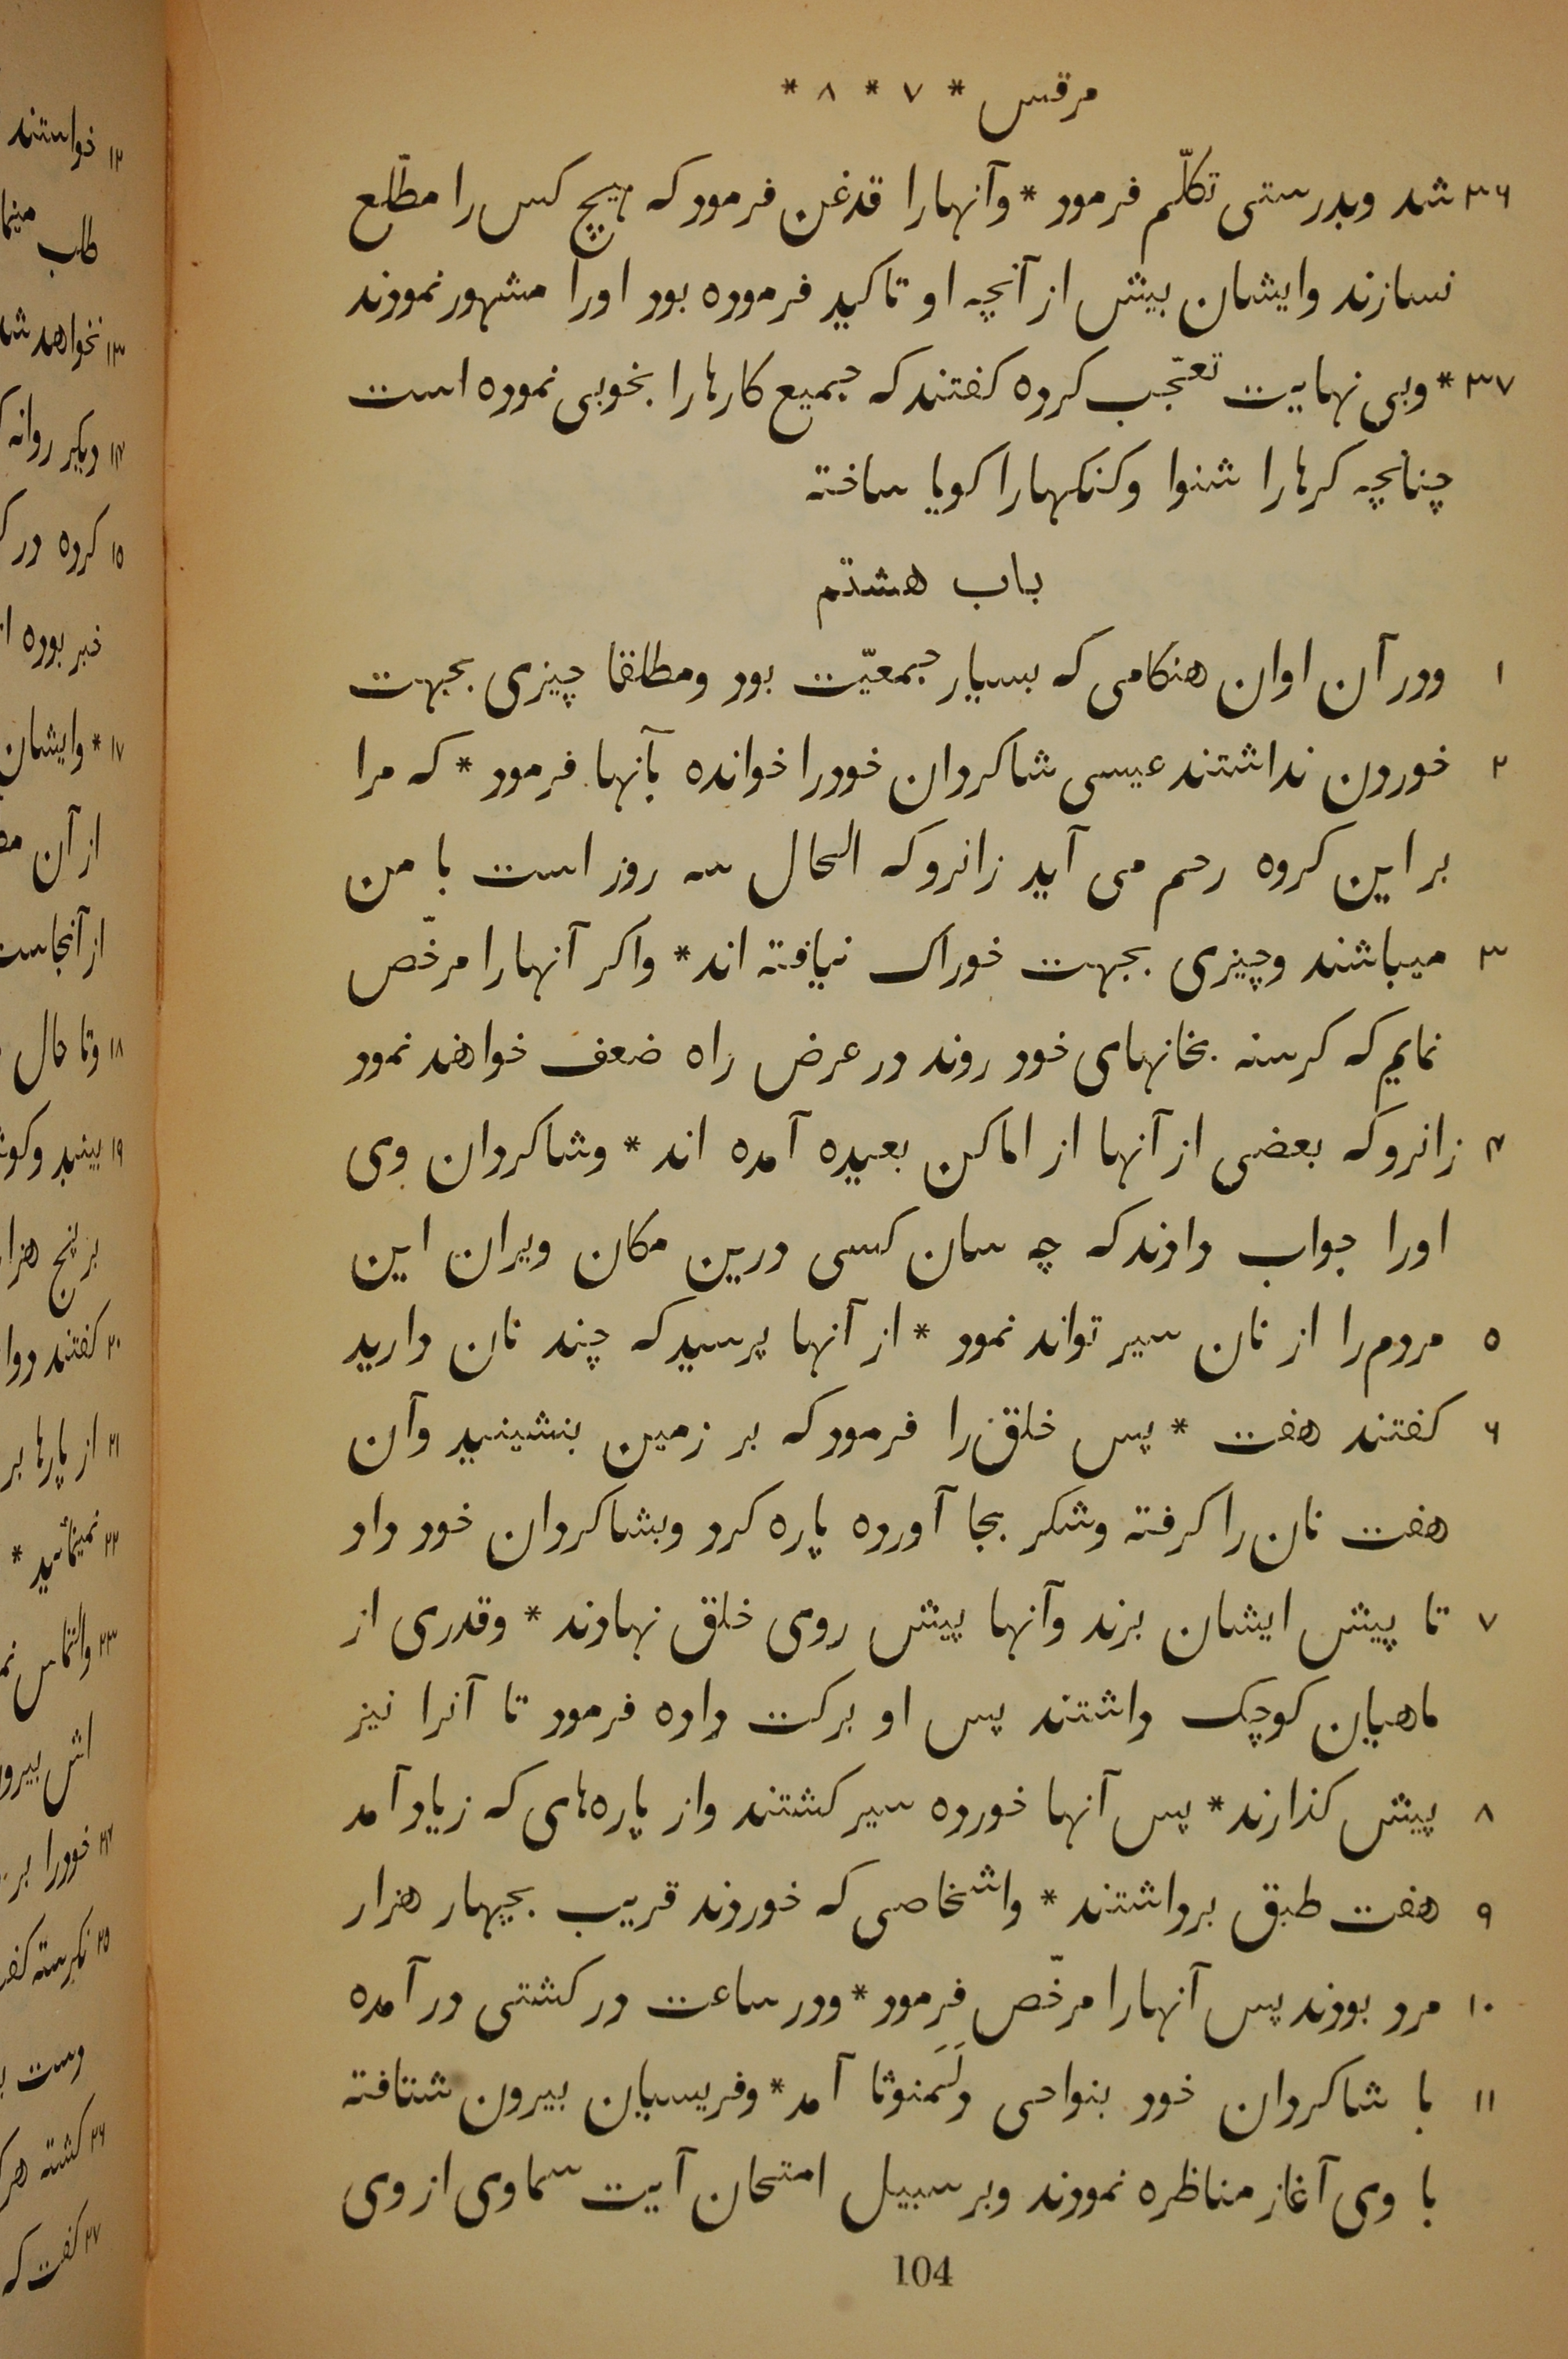 مرقس * ۷ * ۸ *
۳۶ شد وبدرستی تکلّم فرمود * وآنهارا قدغن فرمود که هیچ کس را مطّلع
نسازند وایشان بیش از آنچه او تاکید فرموده بود اورا مشهور نمودند
۳۷ * وبی نهایت تعجّب کرده کفتند که جمیع کارها را بخوبی نموده است
چنانچه کرها را شنوا وکنکهارا کویا ساخته
باب هشتم
۱ ودر آن اوان هنکامی که بسیار جمعیّت بود ومطلقا چیزی بجهت
۲ خوردن نداشتند عیسی شاکردان خودرا خوانده بآنها فرمود * که مرا
بر این کروه رحم می آید زانروکه الحال سه روز است با من
۳ میباشند وچیزی بجهت خوراک نیافته اند * واکر آنهارا مرخّص
نمایم که کرسنه بخانهای خود روند در عرض راه ضعف خواهند نمود
۴ زانروکه بعضی از آنها از اماکن بعیده آمده اند * وشاکردان وی
اورا جواب دادند که چه سان کسی درین مکان ویران این
۵ مردم را از نان سیر تواند نمود * از آنها پرسید که چند نان دارید
۶ کفتند هفت * پس خلق را فرمود که بر زمین بنشینید وآن
هفت نان را کرفته وشکر بجا آورده پاره کرد وبشاکردان خود داد
۷ تا پیش ایشان برند وآنها پیش روی خلق نهادند * وقدری از
ماهیان کوچک داشتند پس او برکت داده فرمود تا آنرا نیز
۸ پیش کذارند * پس آنها خورده سیر کشتند واز پاره‌های که زیاد آمد
۹ هفت طبق برداشتند * واشخاصی که خوردند قریب بچهار هزار
۱۰ مرد بودند پس آنهارا مرخّص فرمود * ودر ساعت در کشتی در آمده
۱۱ با شاکردان خود بنواحی دلَمَنوثا آمد * وفریسیان بیرون شتافته
با وی آغاز مناظره نمودند وبر سبیل امتحان آیت سماوی از وی
104
۱۲ خواستند
طلب
۱۳ نخواهد شد
۱۴ دیکر روانه
۱۵ کرده در
خبر بوده
۱۷ * وایشان
از آن
از آنجاست
۱۸ وتا حال
۱۹ بینید
بر پنج هزار
۲۰ کفتند
۲۱ از پارها بر
۲۲ نمینمائید *
۲۳ والتماس
اش
۲۴ خودرا بر
۲۵ نکرسته
دست
۲۶ کشته
۲۷ کفت که